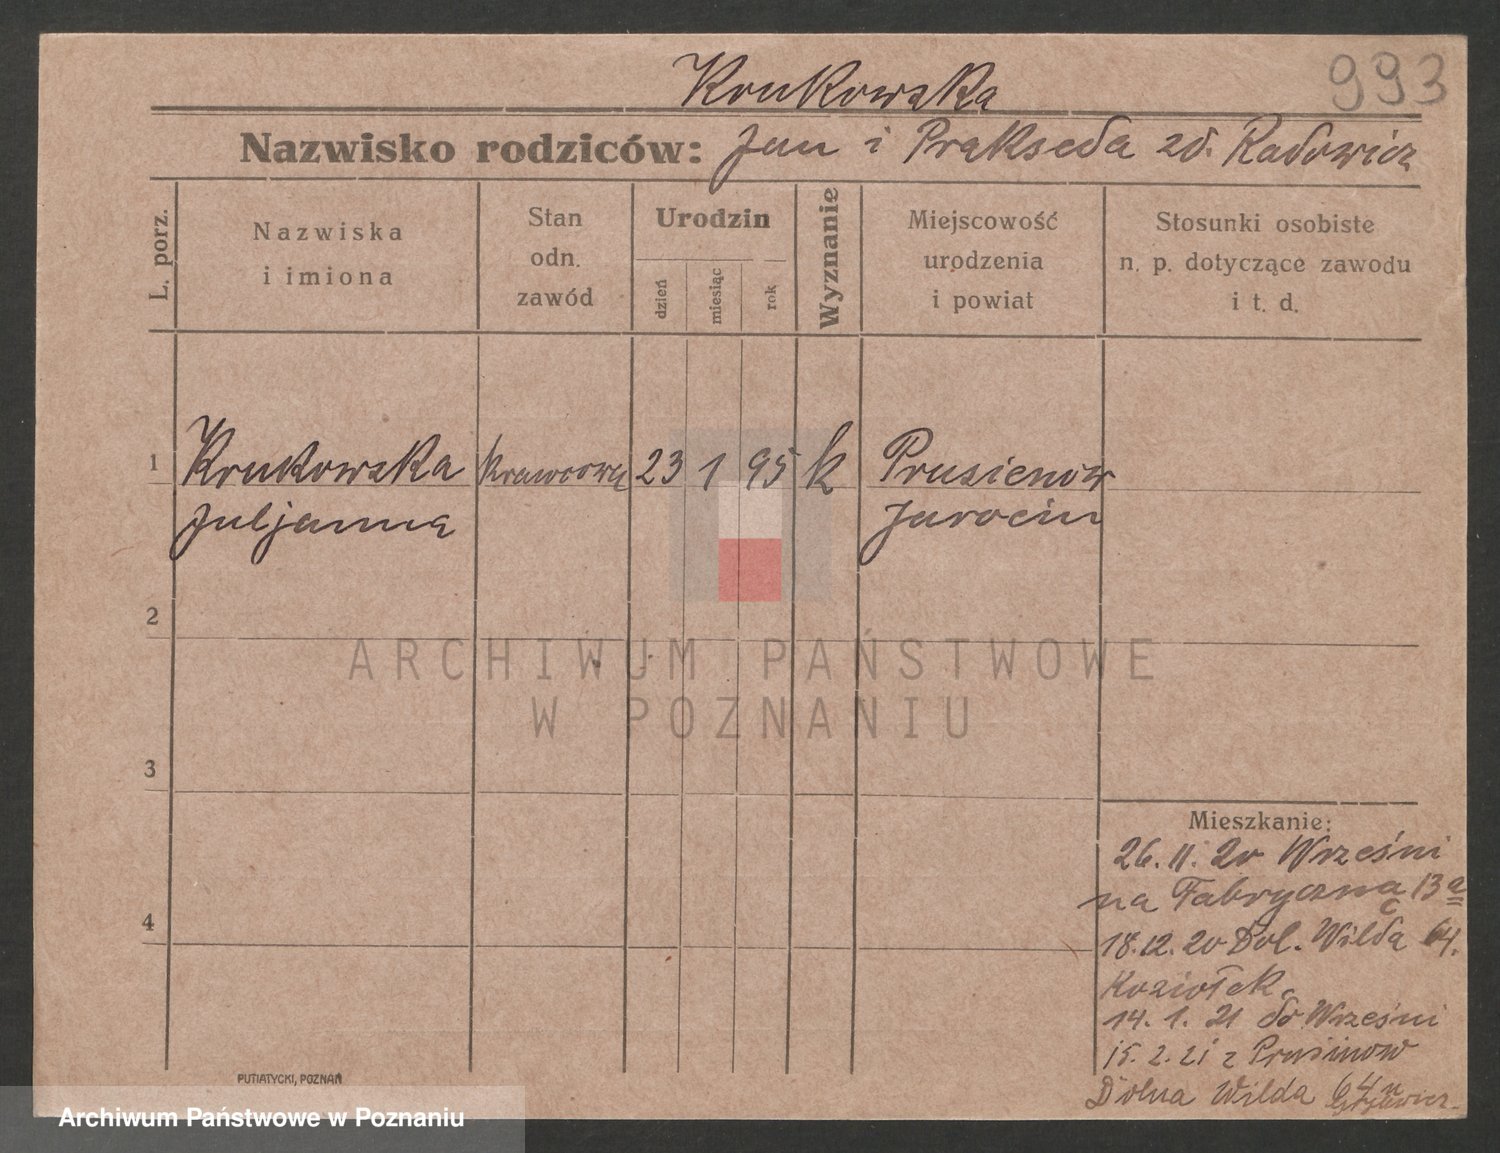 993
Krukowska
Nazwisko rodziców: Jan i Prakseda zd. Radowicz
L. porz.
Nazwiska
i imiona
Stan
odn.
zawód
Urodzin
dzień
miesiąc
rok
Wyznanie
Miejscowość
urodzenia
i powiat
Stosunki osobiste
n. p. dotyczące zawodu
i t. d.
1 Krukowska krawcowa 23 1 95 k Prusienow
Juljanna Jarocin
2
ARCHIWUM PAŃSTWOWE
W POZNANIU
3
4
Mieszkanie:
26.11.20 Wrześni
na Fabryczna 13a
18.12.20 Dol. Wilda 64.
Koziołek
14.1.21 do Wrześni
15.2.21 z Prusinow
Dolna Wilda 64 u
PUTIATYCKI, POZNAŃ
Archiwum Państwowe w Poznaniu